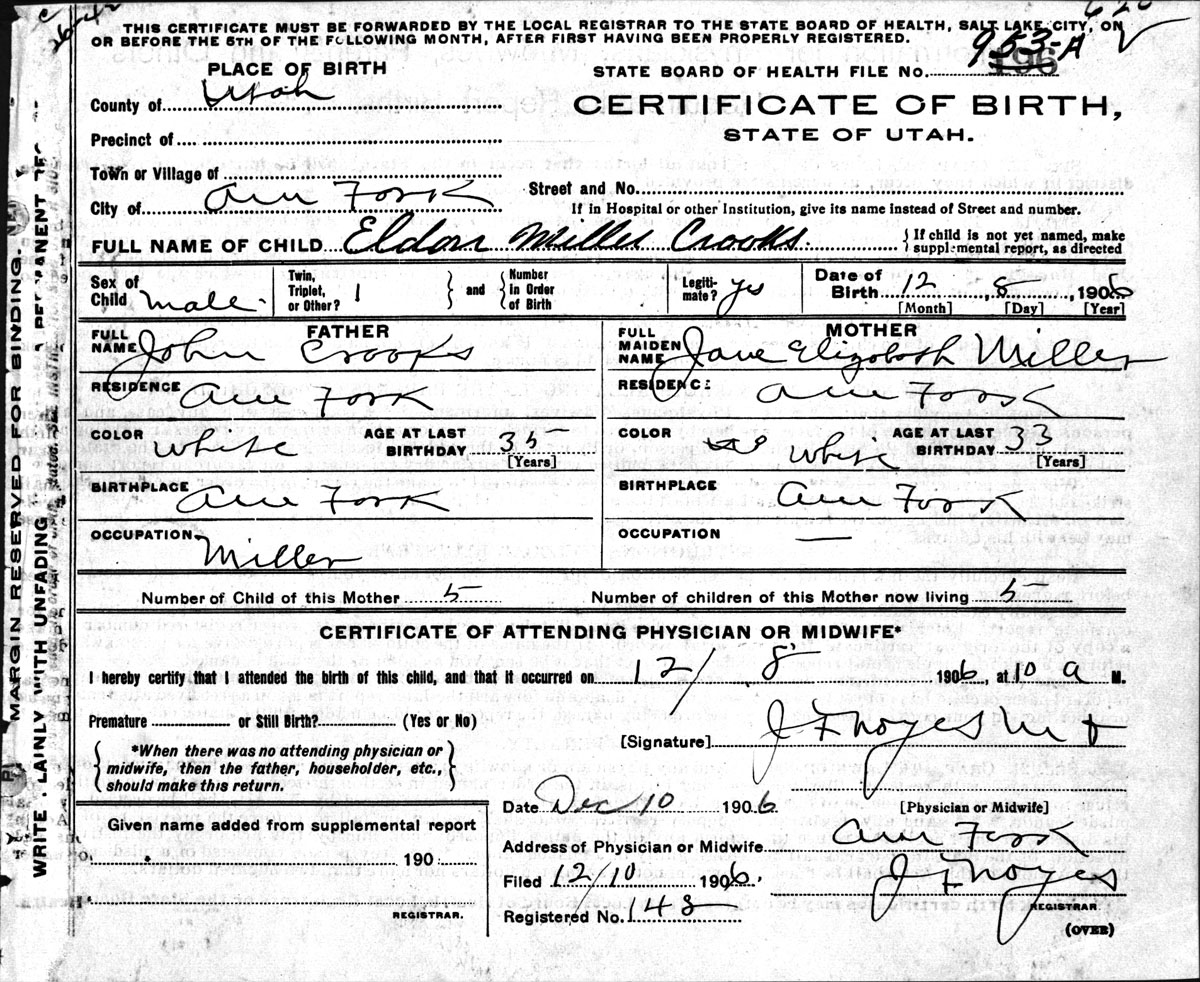 THIS CERTIFICATE MUST BE FORWARDED BY THE LOCAL REGISTRAR TO THE STATE BOARD OF HEALTH, SALT LAKE CITY, ON
OR BEFORE THE 5TH OF THE FOLLOWING MONTH, AFTER FIRST HAVING BEEN PROPERLY REGISTERED.
PLACE OF BIRTH
STATE BOARD OF HEALTH FILE NO. 953-A
196
County of Utah
CERTIFICATE OF BIRTH,
STATE OF UTAH.
Precinct of
Town or Village of
City of Am Fork
Street and No.
If in Hospital or other Institution, give its name instead of Street and number.
FULL NAME OF CHILD Eldon Miller Crooks. } If child is not yet named, make supplemental report, as directed
Sex of Child male Twin, Triplet, or Other? 1 } and { Number in Order of Birth Legitimate? yes Date of Birth 12, 8, 1906
[Month] [Day] [Year]
FATHER
FULL NAME John Crooks
RESIDENCE Am Fork
COLOR White AGE AT LAST BIRTHDAY 35
[Years]
BIRTHPLACE Am Fork
OCCUPATION Miller
MOTHER
FULL MAIDEN NAME Jane Elizabeth Miller
RESIDENCE Am Fork
COLOR White AGE AT LAST BIRTHDAY 33
[Years]
BIRTHPLACE Am Fork
OCCUPATION —
Number of Child of this Mother 5 Number of children of this Mother now living 5
CERTIFICATE OF ATTENDING PHYSICIAN OR MIDWIFE*
I hereby certify that I attended the birth of this child, and that it occurred on 12/8 1906, at 10 a M.
Premature or Still Birth? (Yes or No)
[Signature] J F Noyes M D
{ *When there was no attending physician or
midwife, then the father, householder, etc.,
should make this return. }
[Physician or Midwife]
Date Dec 10 1906
Address of Physician or Midwife Am Fork
Filed 12/10 1906. J F Noyes
REGISTRAR.
Registered No. 148
(OVER)
Given name added from supplemental report
190
REGISTRAR.
MARGIN RESERVED FOR BINDING
WRITE PLAINLY WITH UNFADING